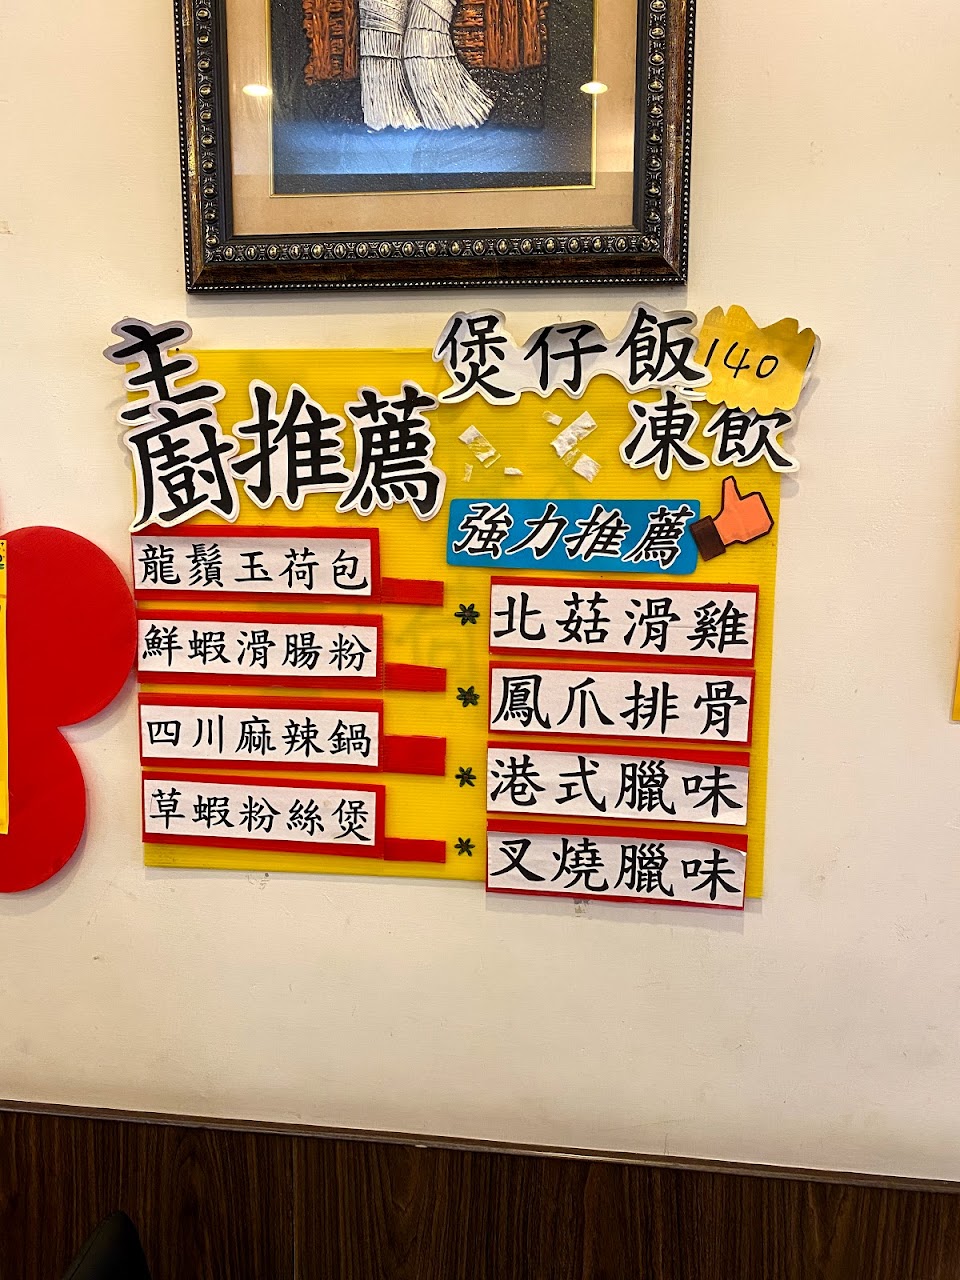 主廚推薦
龍鬚玉荷包
鮮蝦滑腸粉
四川麻辣鍋
草蝦粉絲煲
煲仔飯 140
凍飲
強力推薦
*北菇滑雞
*鳳爪排骨
*港式臘味
*叉燒臘味